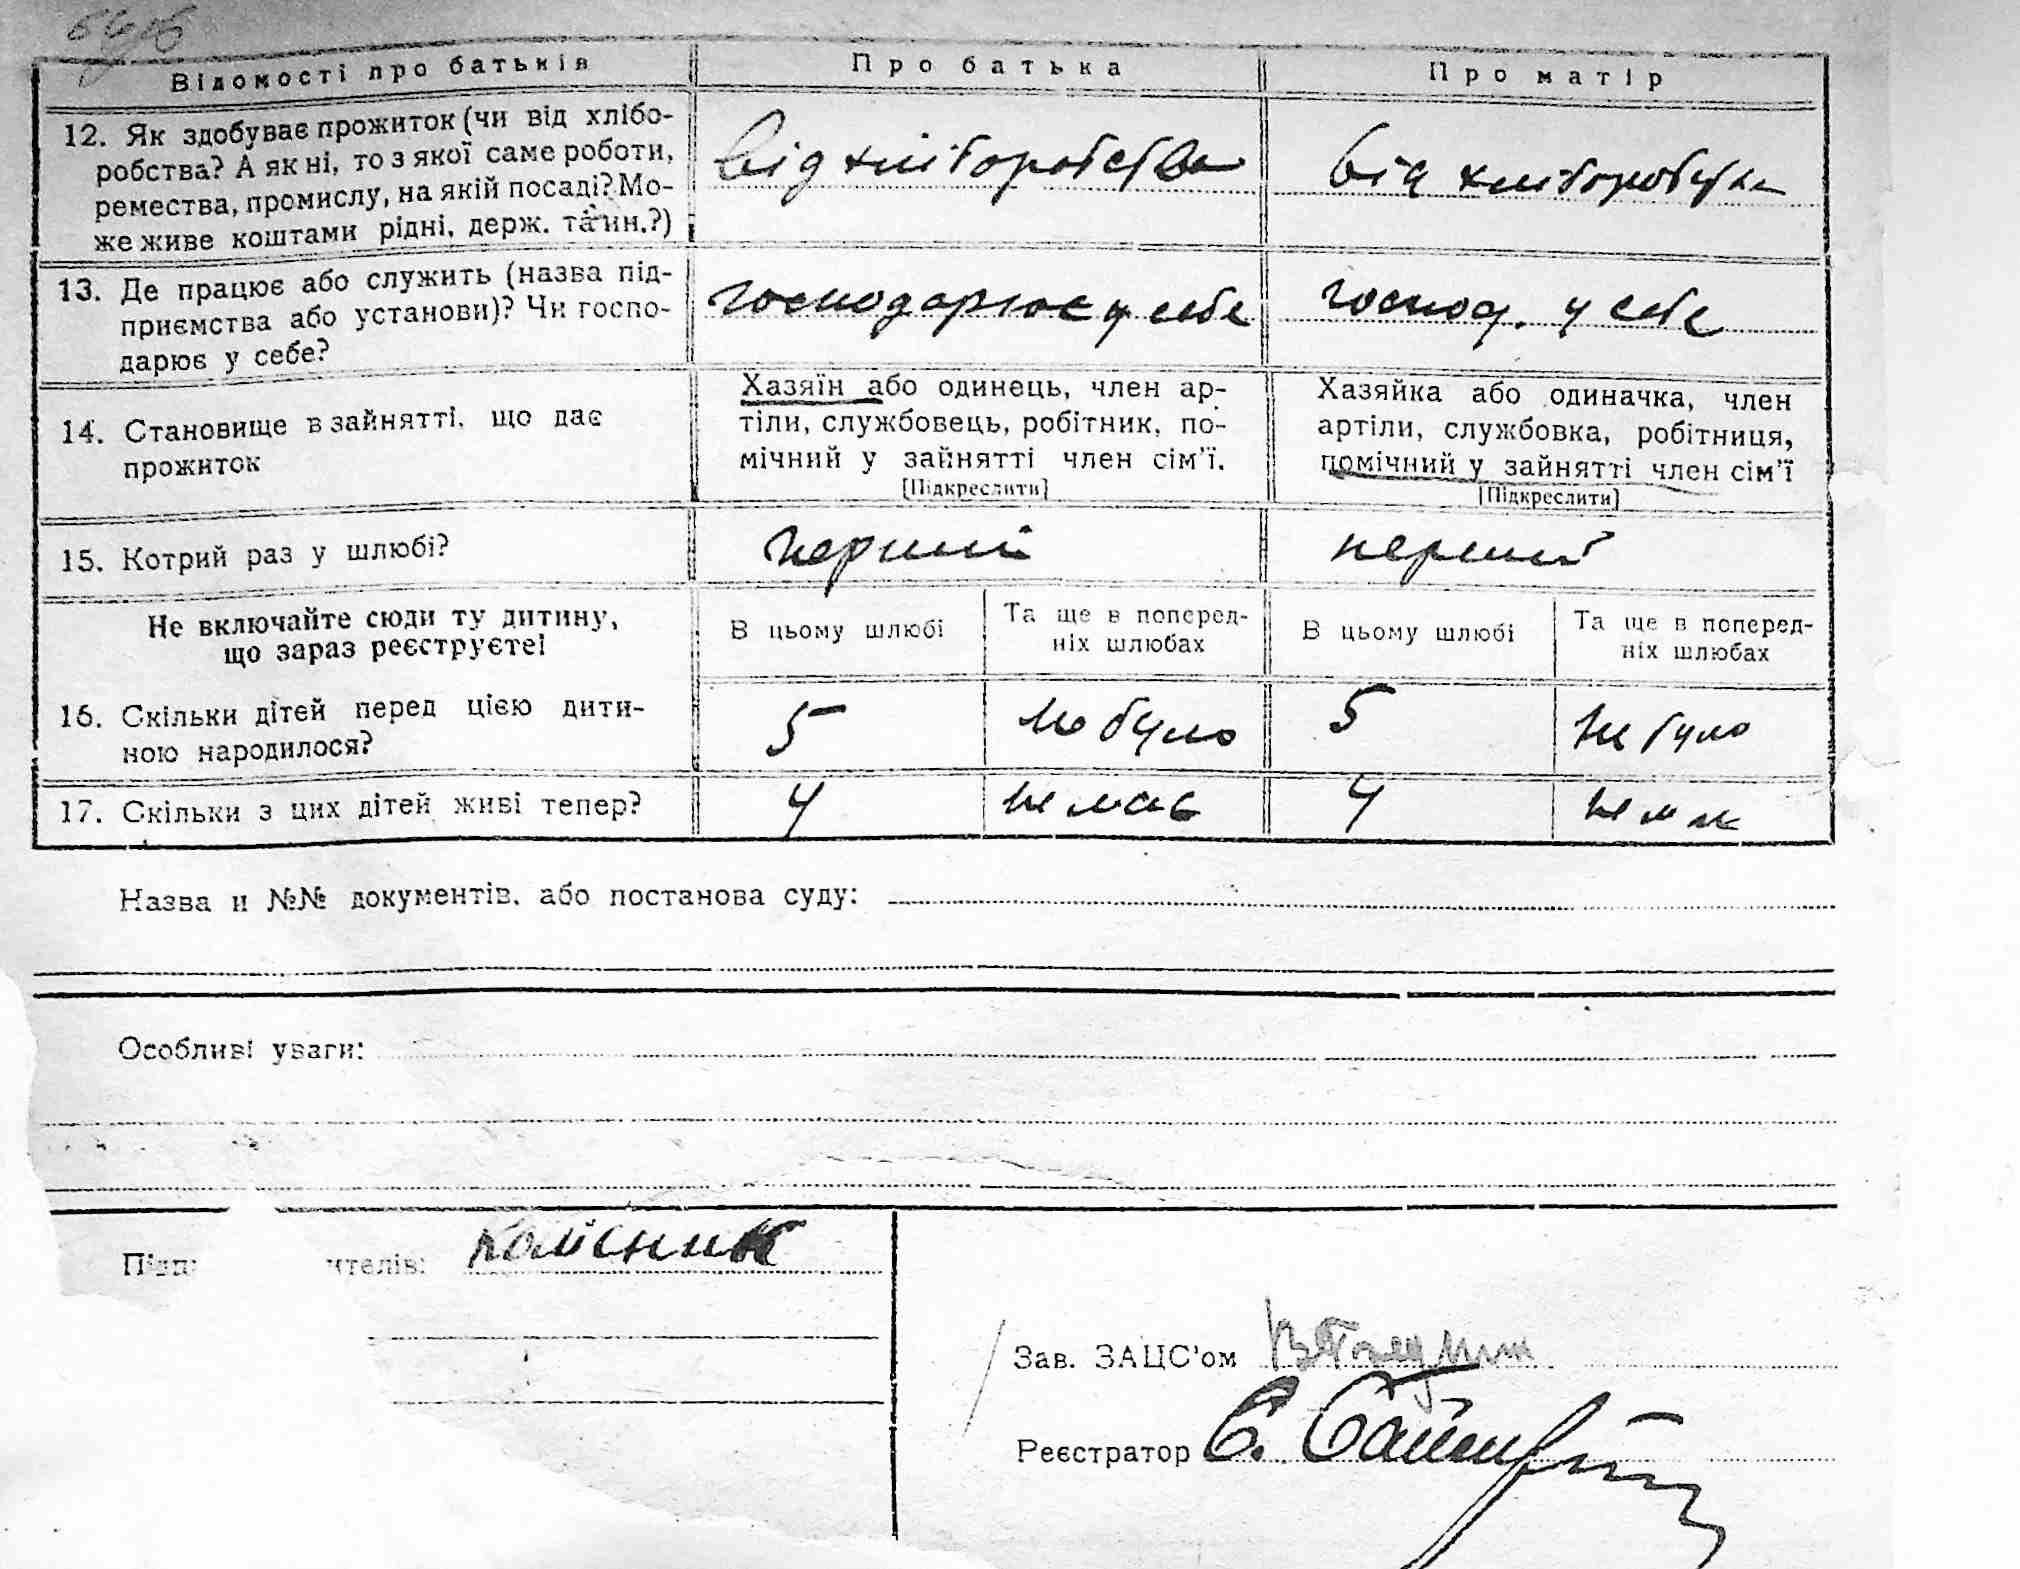 Відомості про батьків
Про батька
Про матір
12. Як здобуває прожиток (чи від хлібо-
робства? А як ні, то з якої саме роботи,
ремества, промислу, на якій посаді? Мо-
же живе коштами рідні, держ. та ин.?)
Від хліборобства
від хліборобства
13. Де працює або служить (назва під-
приємства або установи)? Чи госпо-
дарює у себе?
господарює у себе
господ. у себе
14. Становище в зайнятті, що дає
прожиток
Хазяїн або одинець, член ар-
тіли, службовець, робітник, по-
мічний у зайнятті член сім'ї.
[Підкреслити]
Хазяйка або одиначка, член
артіли, службовка, робітниця,
помічний у зайнятті член сім'ї
[Підкреслити]
15. Котрий раз у шлюбі?
перший
перший
Не включайте сюди ту дитину,
що зараз реєструєте!
В цьому шлюбі
Та ще в поперед-
ніх шлюбах
В цьому шлюбі
Та ще в поперед-
ніх шлюбах
16. Скільки дітей перед цією дити-
ною народилося?
5
не було
5
не було
17. Скільки з цих дітей живі тепер?
4
немає
4
немає
Назва й №№ документів, або постанова суду:
Особливі уваги:
Підп ителів:
Колісник
Зав. ЗАЦС'ом
Реєстратор С.